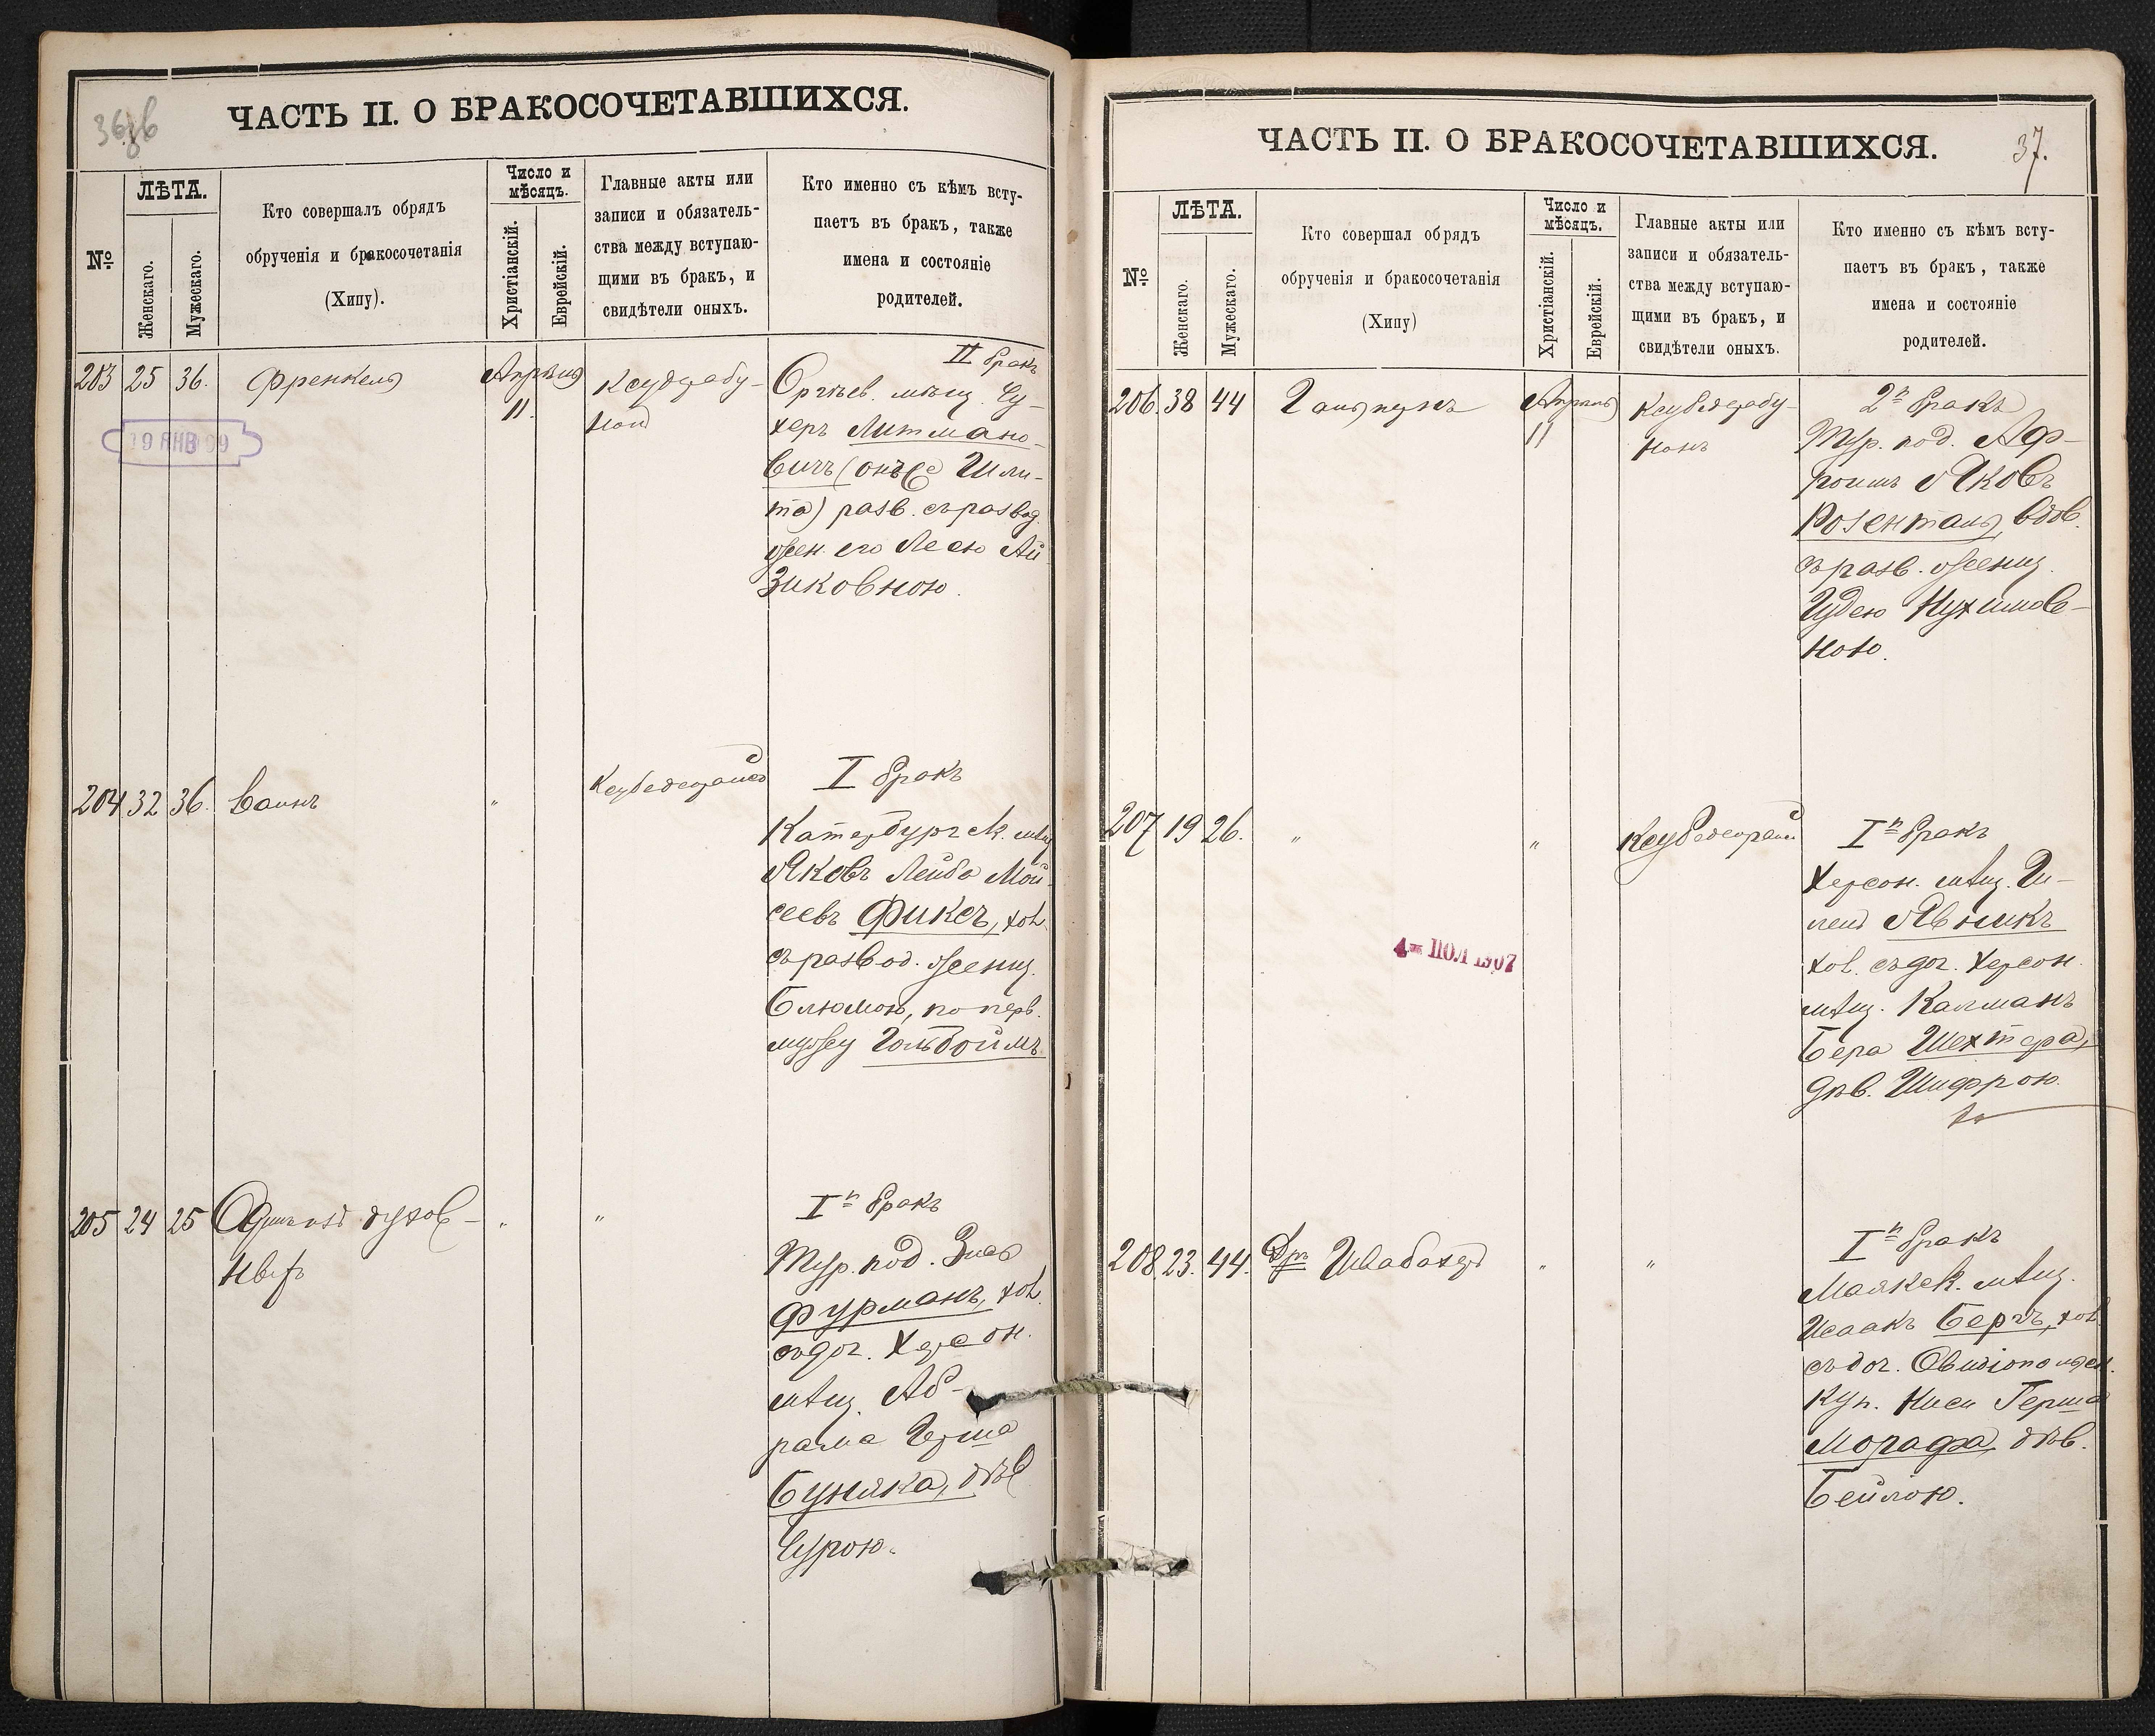 36
ЧАСТЬ II. О БРАКОСОЧЕТАВШИХСЯ.
№
ЛѢТА.
Женскаго.
Мужескаго.
Кто совершалъ обрядъ
обрученія и бракосочетанія
(Хипу).
Число и
мѣсяцъ.
Христіанскій.
Еврейскій.
Главные акты или
записи и обязатель-
ства между вступаю-
щими въ бракъ, и
свидѣтели оныхъ.
Кто именно съ кѣмъ всту-
паетъ въ бракъ, также
имена и состояніе
родителей.
203 25 36. Френкель Апрѣля
11.
II бракъ
Оргѣев. мѣщ. Су-
херъ Литмано-
вичъ (онъ же
) разв. съ развод.
жен. его Лею Ай-
зиковною.
19 ЯНВ 99
204 32 36. Ваинъ "
I бракъ
Катербургск. мѣщ
Яковъ Лейба Мои-
сеевъ Фиксъ, хол.
съ развод. женщ.
Блюмою, по перв.
мужу Гольдоймъ.
205 24 25 " "
Iй бракъ
Тур. под. Зись
Фурманъ, хол.
съ доч. Херсон.
мѣщ. Аб-
рама Герша
Буняка, дѣв
Сурою.
ЧАСТЬ II. О БРАКОСОЧЕТАВШИХСЯ.
37.
№
ЛѢТА.
Женскаго.
Мужескаго.
Кто совершал обрядъ
обрученія и бракосочетанія
(Хипу)
Число и
мѣсяцъ.
Христіанскій.
Еврейскій.
Главные акты или
записи и обязатель-
ства между вступаю-
щими въ бракъ, и
свидѣтели оныхъ.
Кто именно съ кѣмъ всту-
паетъ въ бракъ, также
имена и состояніе
родителей.
206. 38 44 Гальпунъ Апрѣля
11
2й бракъ
Тур. под. Аф-
роимъ Яковъ
Розенталь, вдов.
съ разв. женщ.
Нухимов-
ною.
207 19 26. " "
Iй бракъ
Херсон. мѣщ. Ши-
Явникъ
хол. съ доч. Херсон.
мѣщ. Калманъ
Бера Шехтера,
дѣв. Шифрою.
4 ІЮЛ 1907
208. 23. 44. Др. Швабахеръ " "
Iй бракъ
Маякск. мѣщ.
Исаакъ Бергъ, хол.
съ доч. Овидіопольск.
куп. Киси Герша
Морафа, дѣв.
Бейлою.